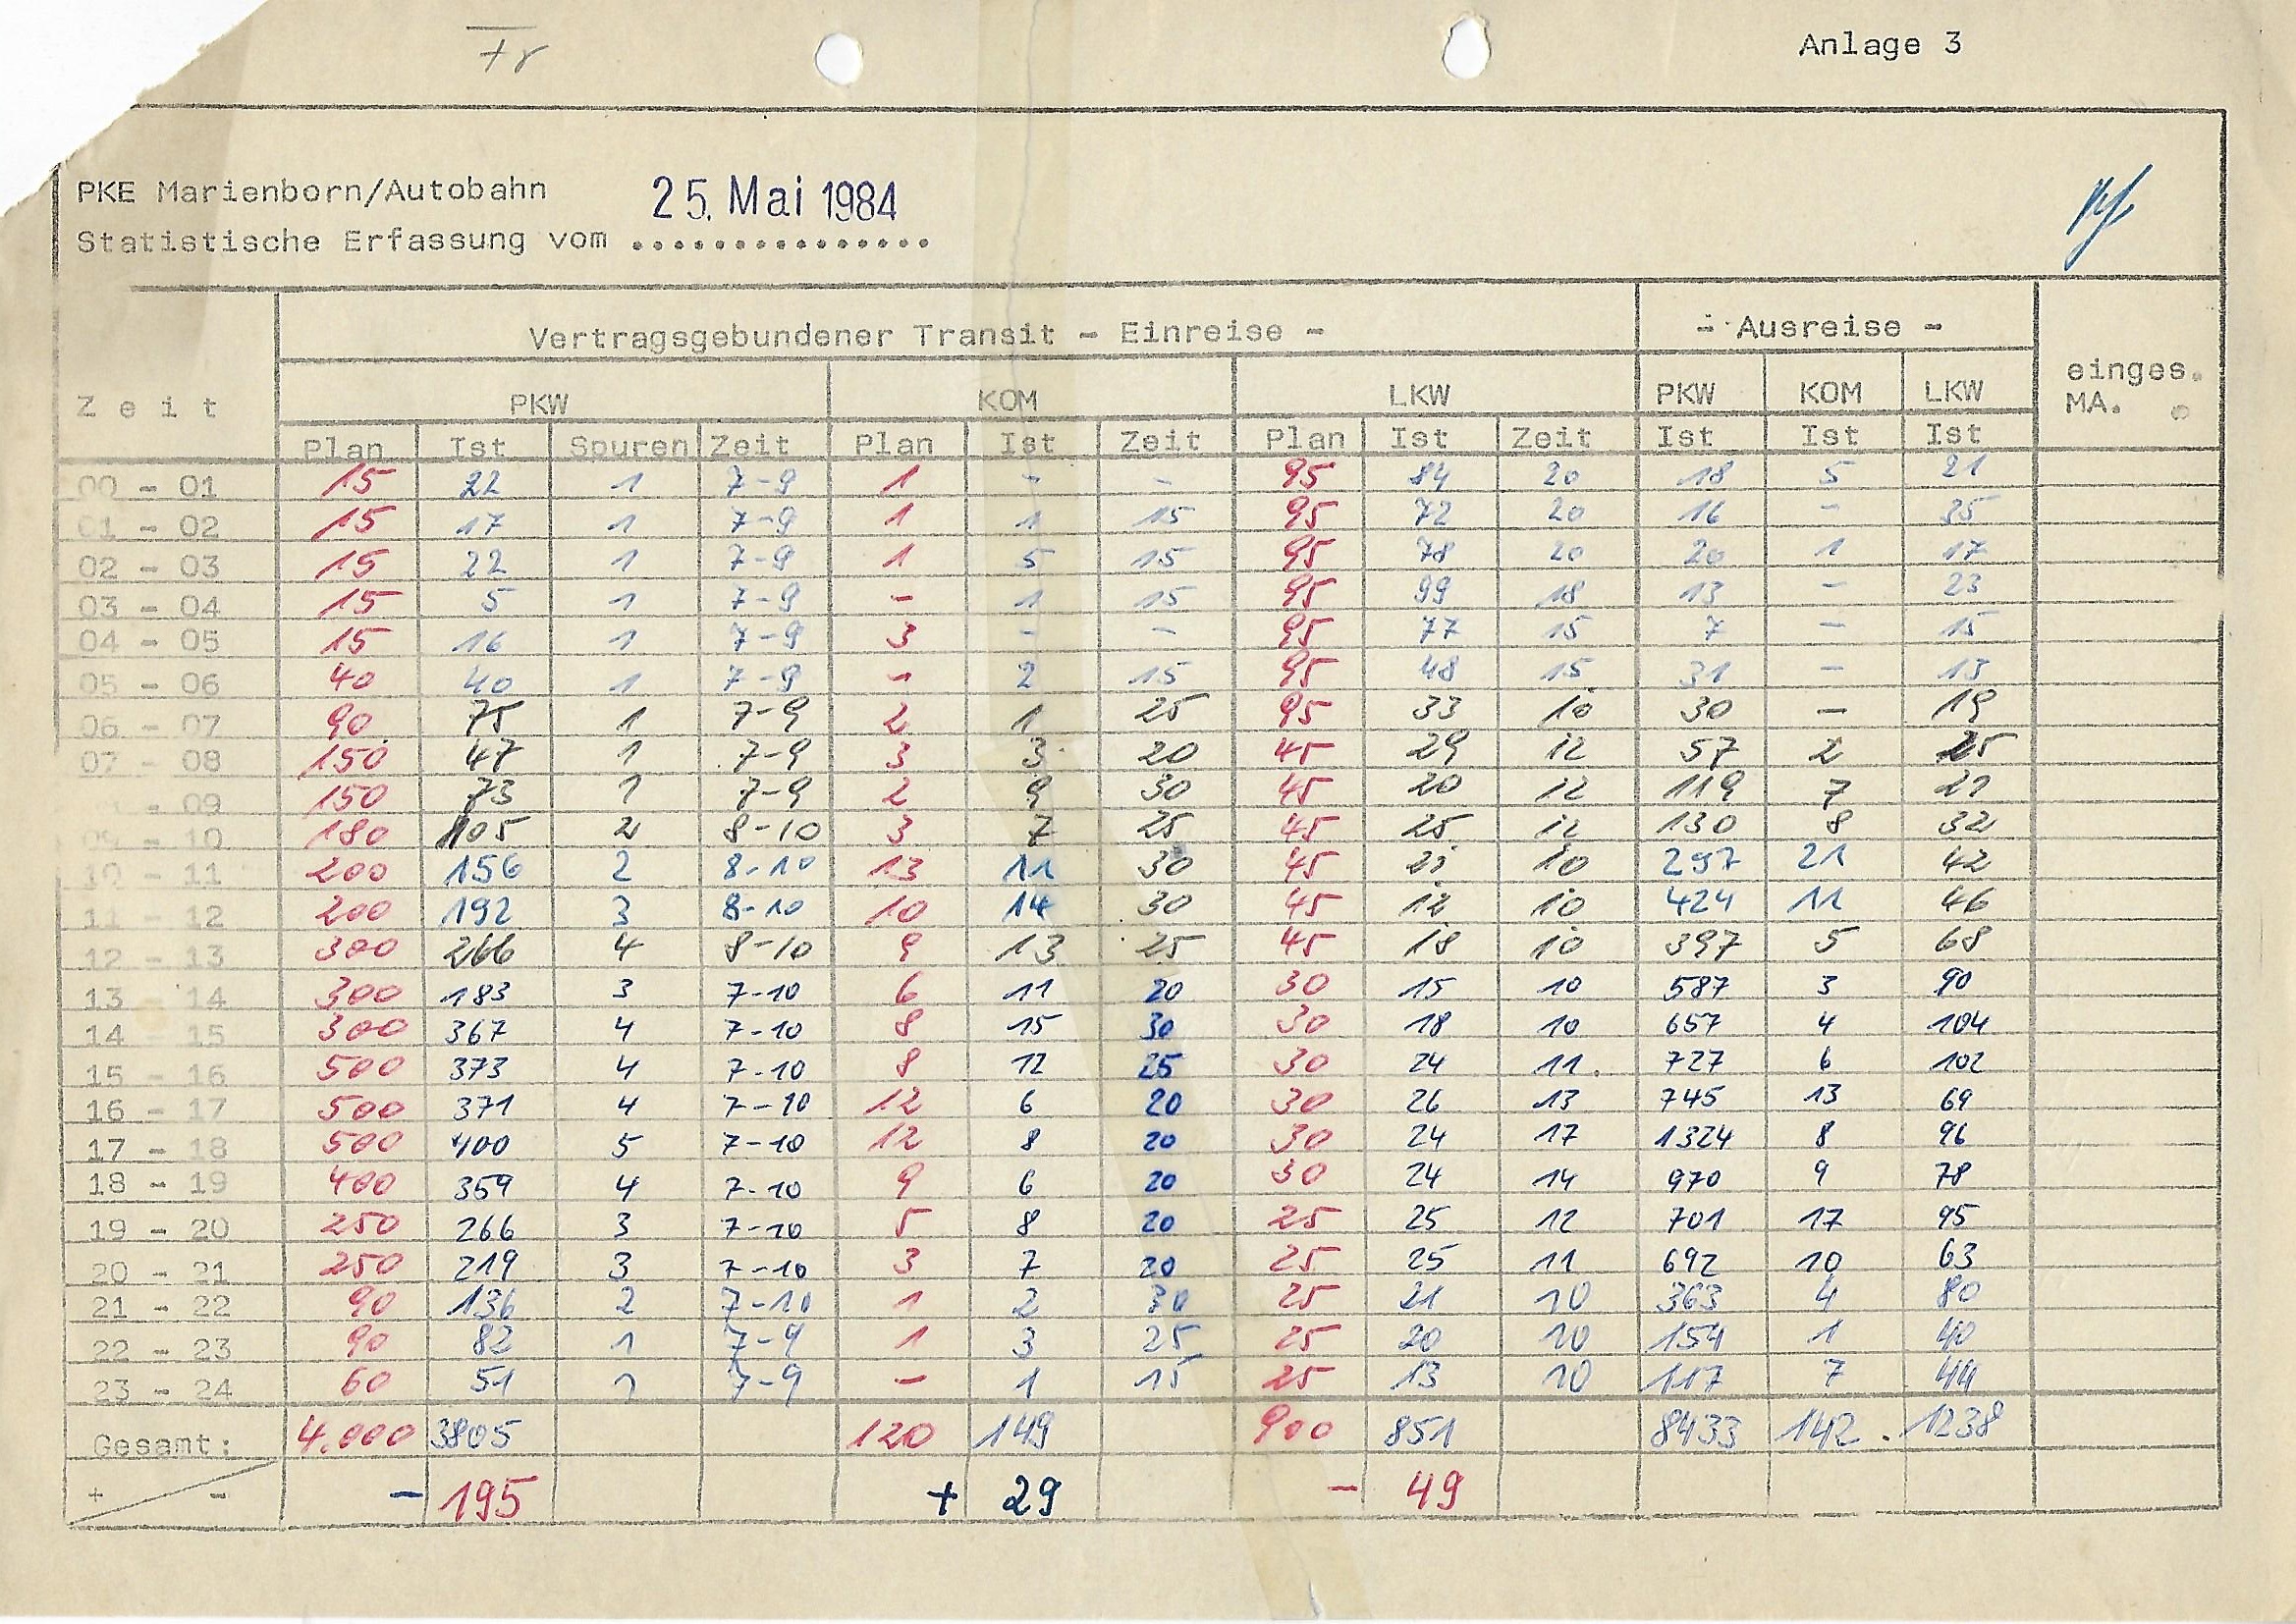 Anlage 3
PKE Marienborn/Autobahn 25. Mai 1984
Statistische Erfassung vom ...............
Vertragsgebundener Transit - Einreise - - Ausreise -
Zeit PKW KOM LKW PKW KOM LKW einges. MA.
Plan Ist Spuren Zeit Plan Ist Zeit Plan Ist Zeit Ist Ist Ist
00 - 01 15 22 1 7-9 1 - - 95 84 20 18 5 21
01 - 02 15 17 1 7-9 1 1 15 95 72 20 16 - 35
02 - 03 15 22 1 7-9 1 5 15 95 78 20 20 1 17
03 - 04 15 5 1 7-9 - 1 15 95 99 18 13 - 23
04 - 05 15 16 1 7-9 3 - - 95 77 15 7 - 15
05 - 06 40 40 1 7-9 - 2 15 95 48 15 31 - 13
06 - 07 90 75 1 7-9 2 1 25 95 33 10 30 - 19
07 - 08 150 47 1 7-9 3 3 20 45 29 12 57 2 25
- 09 150 73 1 7-9 2 9 30 45 20 12 119 7 21
09 - 10 180 105 2 8-10 3 7 25 45 25 12 130 8 32
10 - 11 200 156 2 8-10 13 11 30 45 21 10 297 21 42
11 - 12 200 192 3 8-10 10 14 30 45 12 10 424 11 46
12 - 13 300 266 4 8-10 9 13 25 45 18 10 397 5 68
13 - 14 300 183 3 7-10 6 11 20 30 15 10 587 3 90
14 15 300 367 4 7-10 8 15 30 30 18 10 657 4 104
15 - 16 500 373 4 7-10 8 12 25 30 24 11 727 6 102
16 - 17 500 371 4 7-10 12 6 20 30 26 13 745 13 69
17 - 18 500 400 5 7-10 12 8 20 30 24 17 1324 8 96
18 - 19 400 359 4 7-10 9 6 20 30 24 14 970 9 78
19 - 20 250 266 3 7-10 5 8 20 25 25 12 701 17 95
20 - 21 250 219 3 7-10 3 7 20 25 25 11 692 10 63
21 - 22 90 136 2 7-10 1 2 30 25 21 10 363 4 80
22 - 23 90 82 1 7-9 1 3 25 25 20 10 154 1 40
23 - 24 60 51 1 7-9 - 1 15 25 13 10 117 7 44
Gesamt: 4.000 3805 120 149 900 851 8433 142 1238
+ - - 195 + 29 - 49